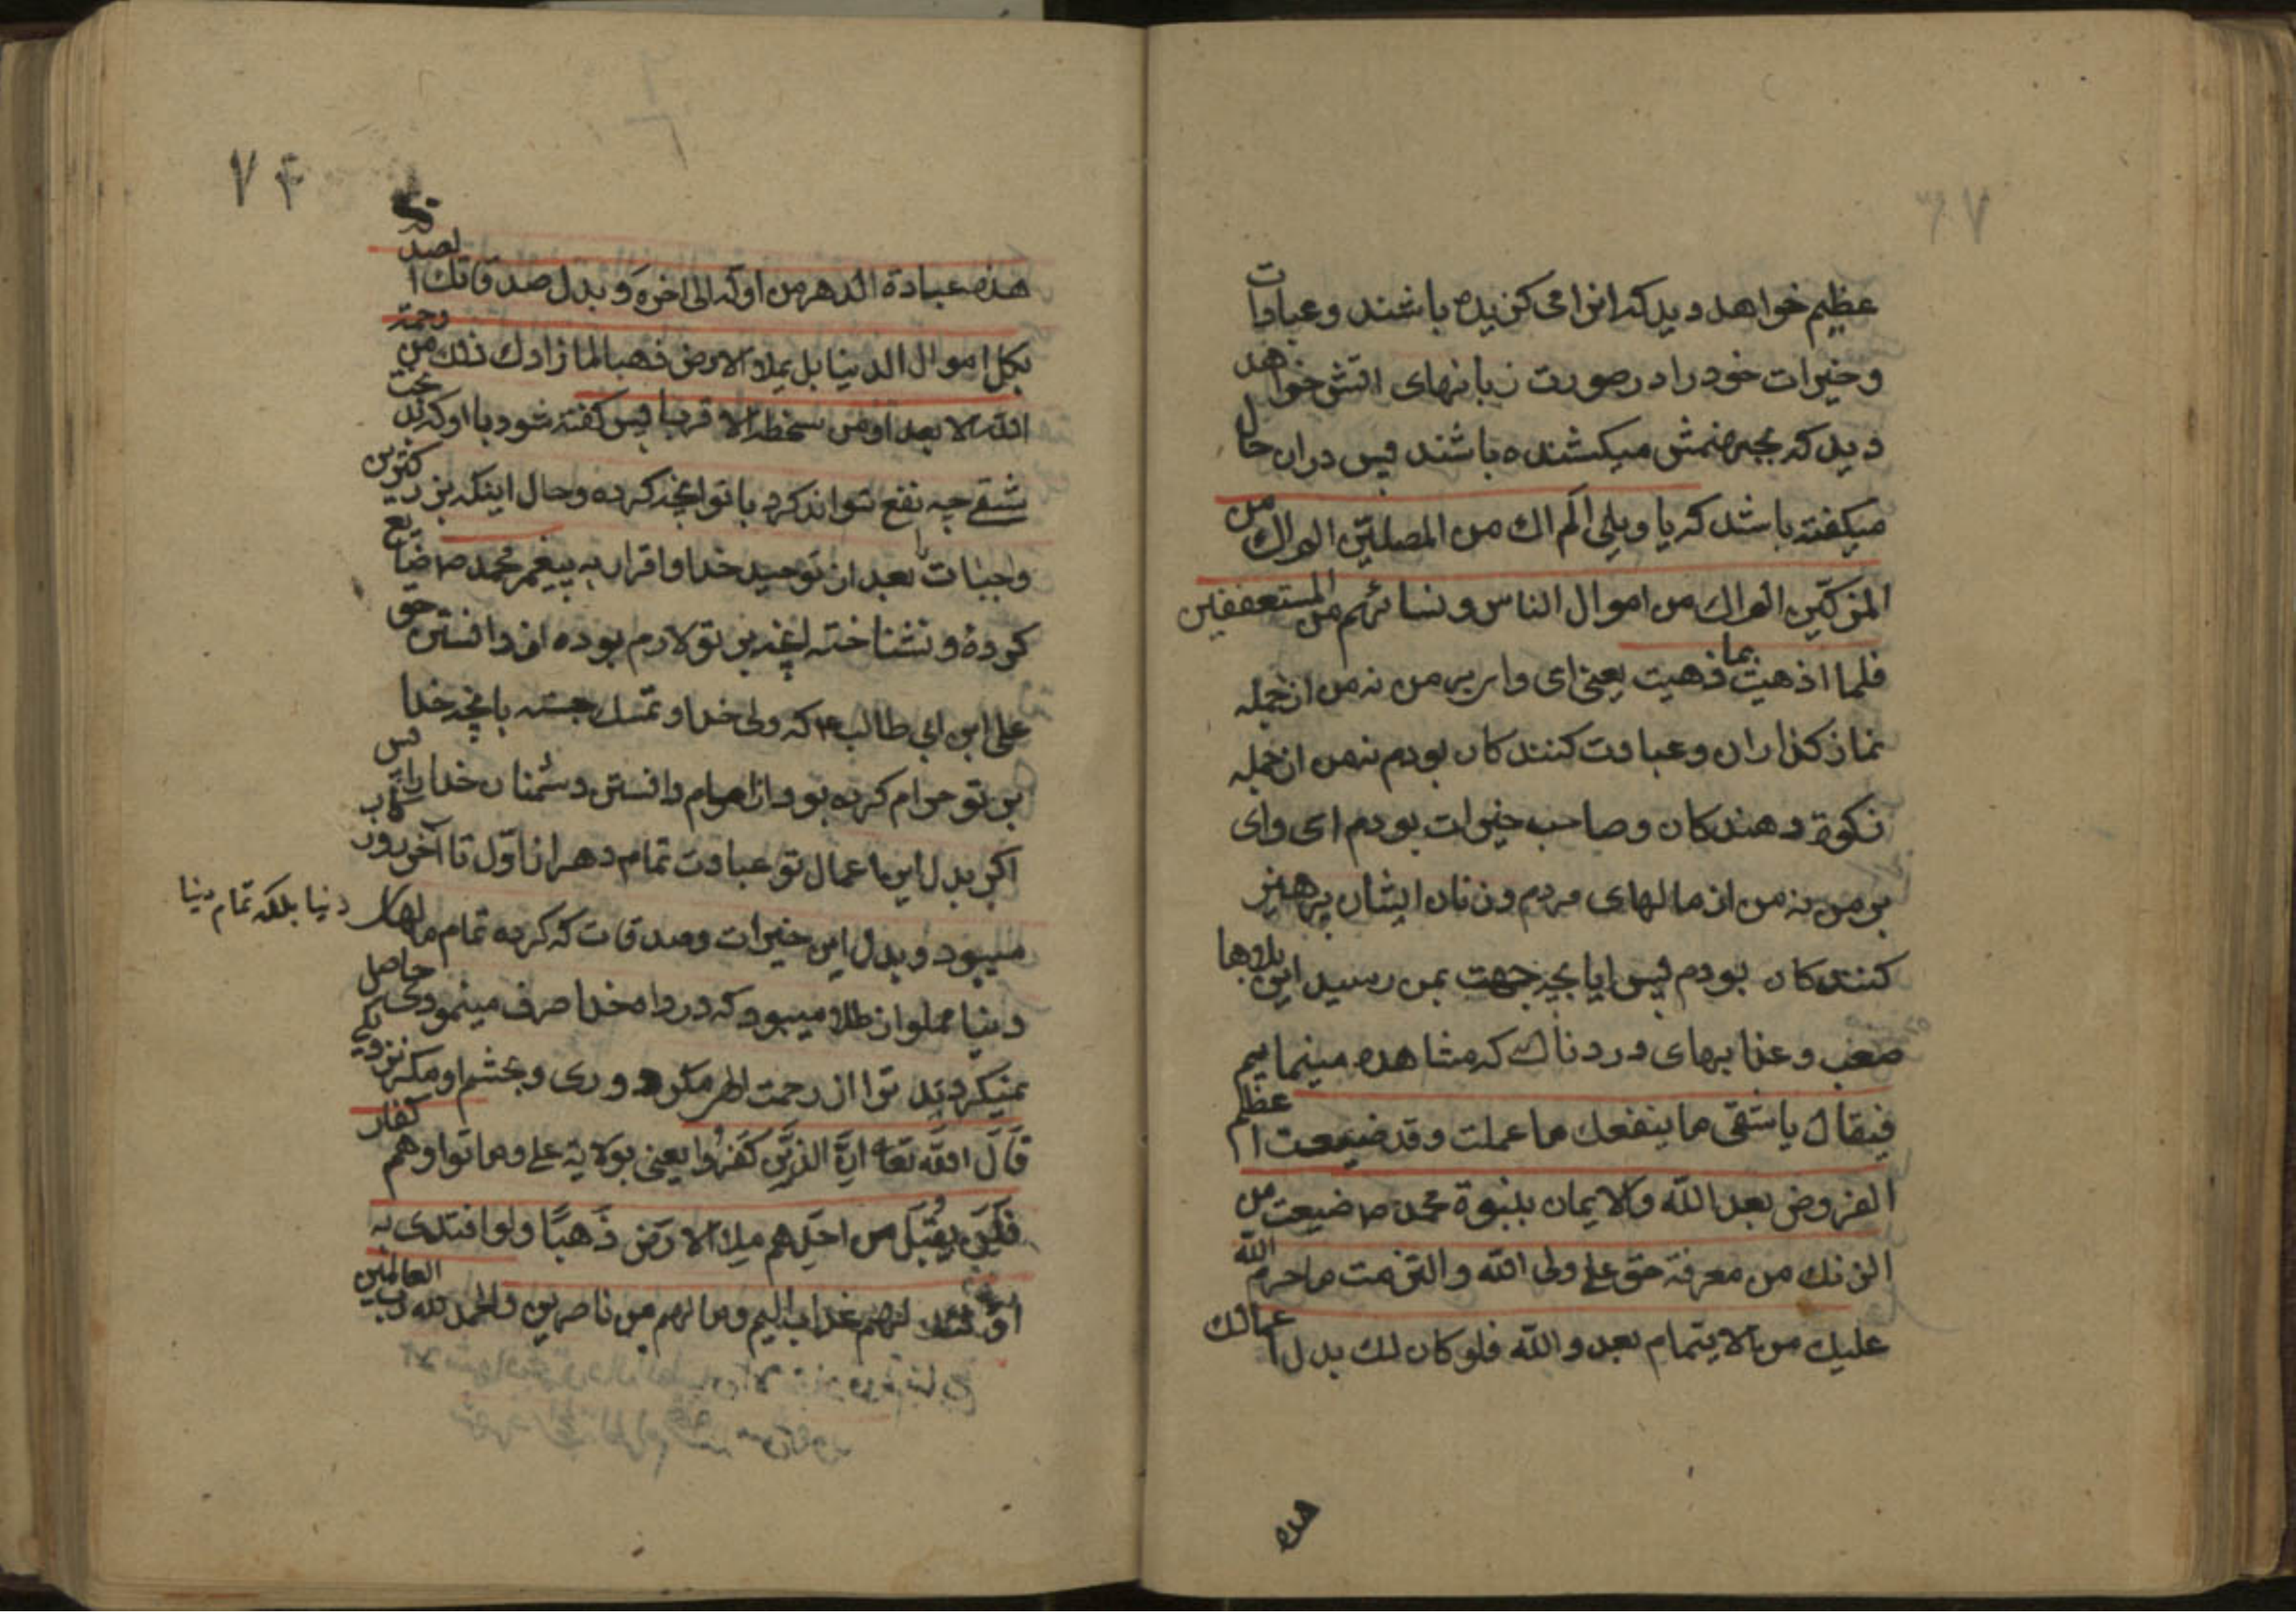 عظیم خواهد دید که انرا می کزیده باشند و عبادات
و خیرات خود را در صورت زبانهای اتش خواهد
دید که بجهنمش میکشنده باشند پس دران حال
میکفته باشد که یا ویلی الم اك من المصلین الم اك من
المزکین الم اك من اموال الناس و نسائهم من المستعففین
فلما اذهیت بما ذهیت یعنی ای وای بر من نه من از جمله
نماز کذاران و عبادت کنندکان بودم نه من از جمله
زکوة دهندکان و صاحب خیرات بودم ای وای
بر من نه من از مالهای مردم و زنان ایشان پرهیز
کنندکان بودم پس ایا بچه جهت بمن رسید این بلاها
صعب و عذابهای دردناك که مشاهده مینمایم
فیقال یا شقی ما ینفعك ما عملت و قد ضیعت اعظم
الفروض بعد الله والایمان بنبوة محمد ص ضیعت من
الزنك من معرفة حق علی ولی الله و التزمت ما حرم الله
علیك من الایتمام بعدو الله فلو کان لك بدل اعمالك
هذه
۷۴
هذه عبادة الدهر من اوله الی اخره و بدل صدقاتك الصدقة
بکل اموال الدنیا بل بملاء الارض ذهبا لما زادك ذلك من رحمة
الله الا بعدا و من سخطه الا قربا پس کفته شود با او که ای بدبخت
شقی چه نفع تواند کرد با تو انچه کرده و حال اینکه بزرکترین
واجبات را بعد از توحید خدا و اقرار به پیغمبر محمد ص ضایع
کرده و نشناخته انچه بر تو لازم بوده از دانستن حق
علی ابن ابی طالب ع که ولی خدا و تمسك جسته بانچه خدا
بر تو حرام کرده بود از امام دانستن دشمنان خدا را پس
اکر بدل این اعمال تو عبادت تمام دهر از اول تا آخر روزکار
میبود و بدل این خیرات و صدقات که کرده تمام مالهای
دنیا بلکه تمام دنیا
دنیا مملو از طلا میبود که در راه خدا صرف مینمودی حاصل
نمیکردید ترا از رحمت الهی مکر دوری و بخشم او مکر نزدیکی
قال الله تعا ان الذین کفروا یعنی بولایة علی و ماتوا و هم کفار
فلن یقبل من احدهم ملا الارض ذهبا و لو افتدی به
اولئك لهم عذاب الیم و ما لهم من ناصرین والحمد لله رب العالمین